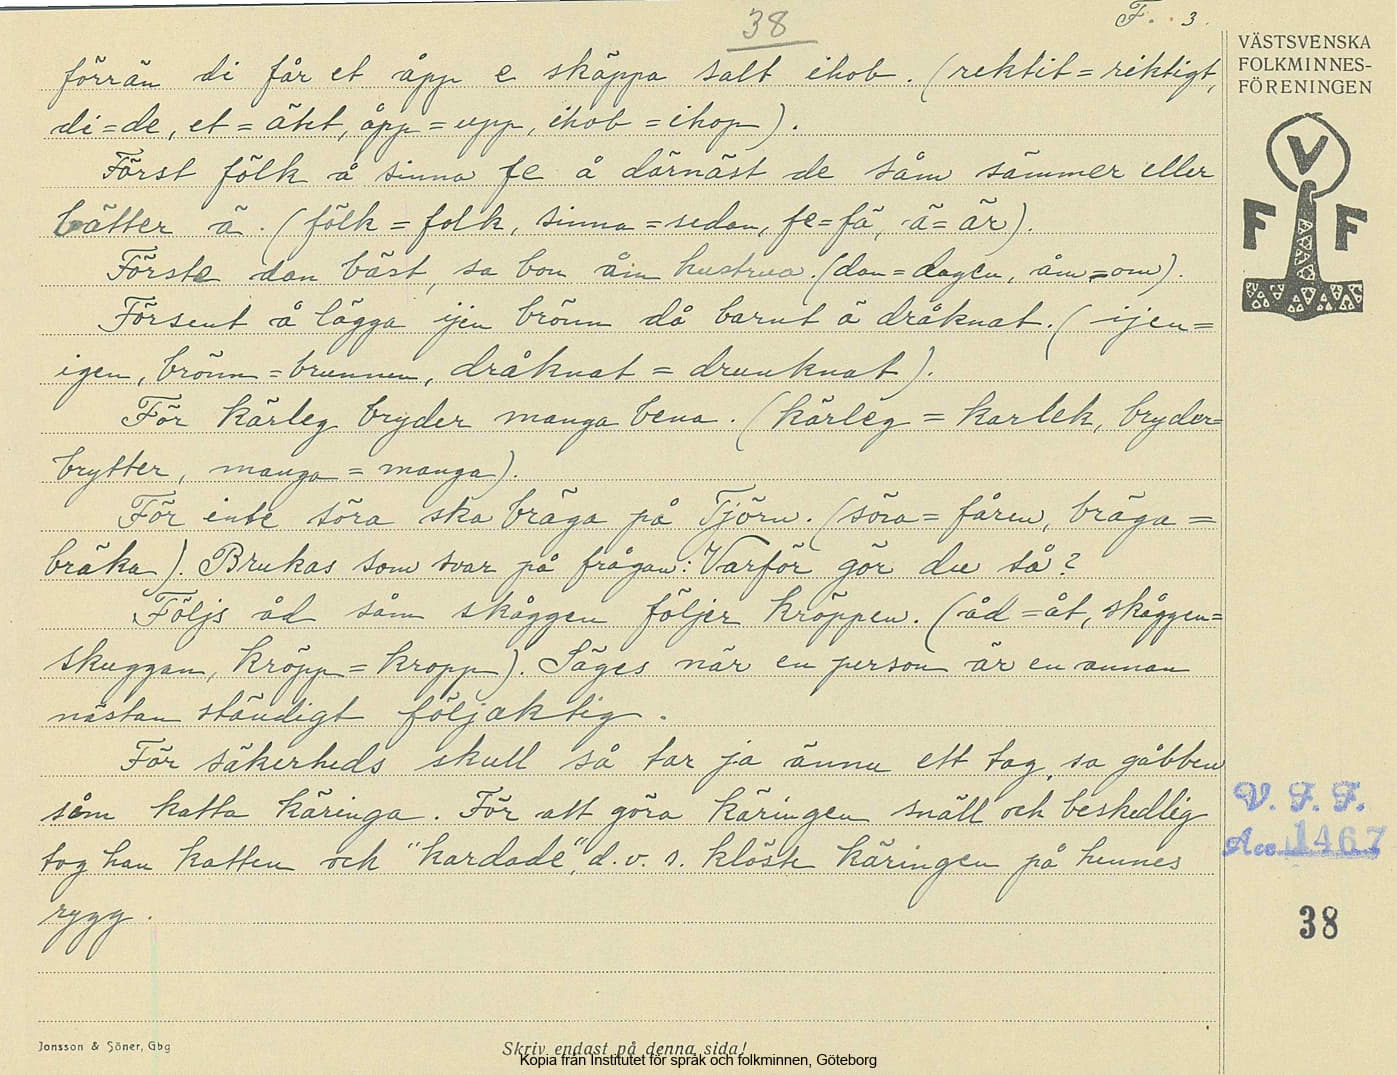 38
F. . 3.
förrän di får et åpp e skäppa salt ihob. (rektit = riktigt,
di=de, et = ätit, åpp = upp, ihob = ihop).
Först fölk å sinna fe å därnäst de såm sämmer eller
bätter ä. (fölk = folk, sinna = sedan, fe=fä, ä= är).
Förste dan bäst, sa bon åm hustrua. (dan = dagen, åm = om).
Försent å lägga ijen brönn då barnt ä dråknat. ( ijen=
igen, brönn = brunnen, dråknat = drunknat).
För kärleg bryder manga bena. (kärleg = karlek, bryder=
brytter, manga = manga).
För inte söra ska bräga på Tjörn. (söra= fåren, bräga =
bräka). Brukas som svar på frågan: Varför gör du så?
Följs åd såm skåggen följer kröppen. (åd =åt, skåggen=
skuggan, kröpp = kropp). Säges när en person är en annan
nästan ständigt följaktig.
För säkerheds skull så tar ja ännu ett tag, sa gåbben
såm katta käringa. För att göra käringen snäll och beskedlig
tog han katten och "kardade", d.v.s. klöste käringen på hennes
rygg.
VÄSTSVENSKA
FOLKMINNES-
FÖRENINGEN
V
F F
V. F. F.
Acc. 1467
38
Jonsson & Söner, Gbg
Skriv endast på denna sida!
Kopia från Institutet för språk och folkminnen, Göteborg